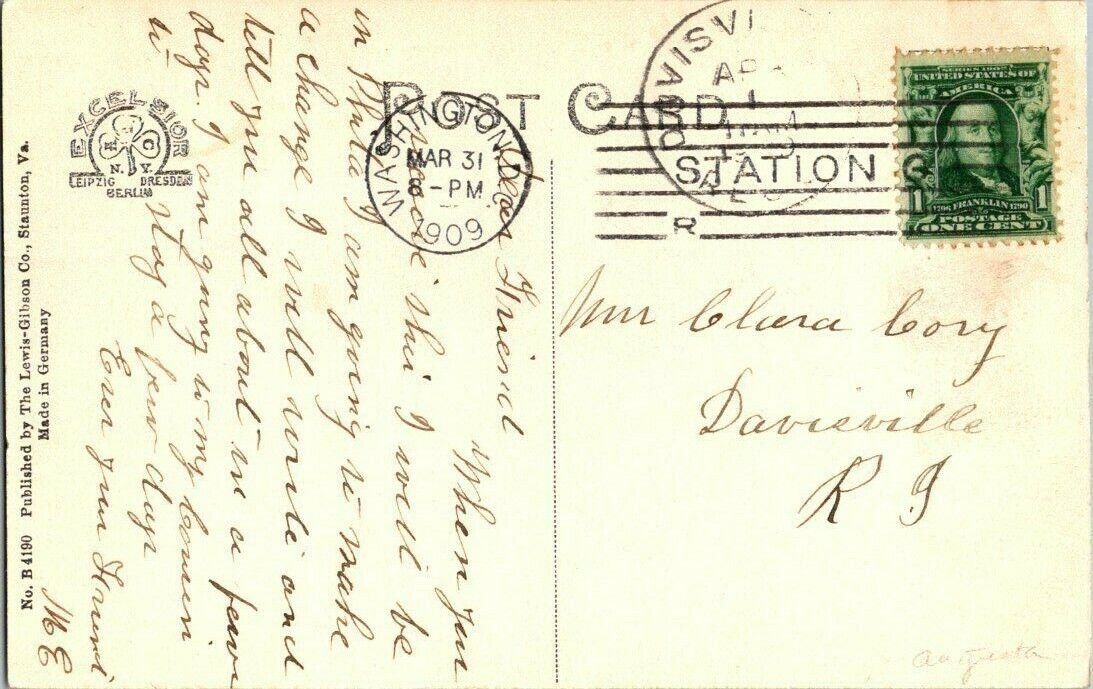 POST CARD
EXCELSIOR
N.Y.
LEIPZIG DRESDEN
BERLIN
No. B 4190 Published by The Lewis-Gibson Co., Staunton, Va.
Made in Germany
WASHINGTON, D.C.
MAR 31
8-PM
1909
STATION G
8
AP
1
SERIES 1902
UNITED STATES OF
AMERICA
1 1
1706 FRANKLIN 1790
POSTAGE
ONE CENT
Dear Friend
When you
receive this I will be
in Phila am going to make
a change I will write and
tell you all about in a few
days. I am going to my Cousin
to stay a few days
Ever your Friend
M E
Clara Cory
Davisville
R I
Augusta